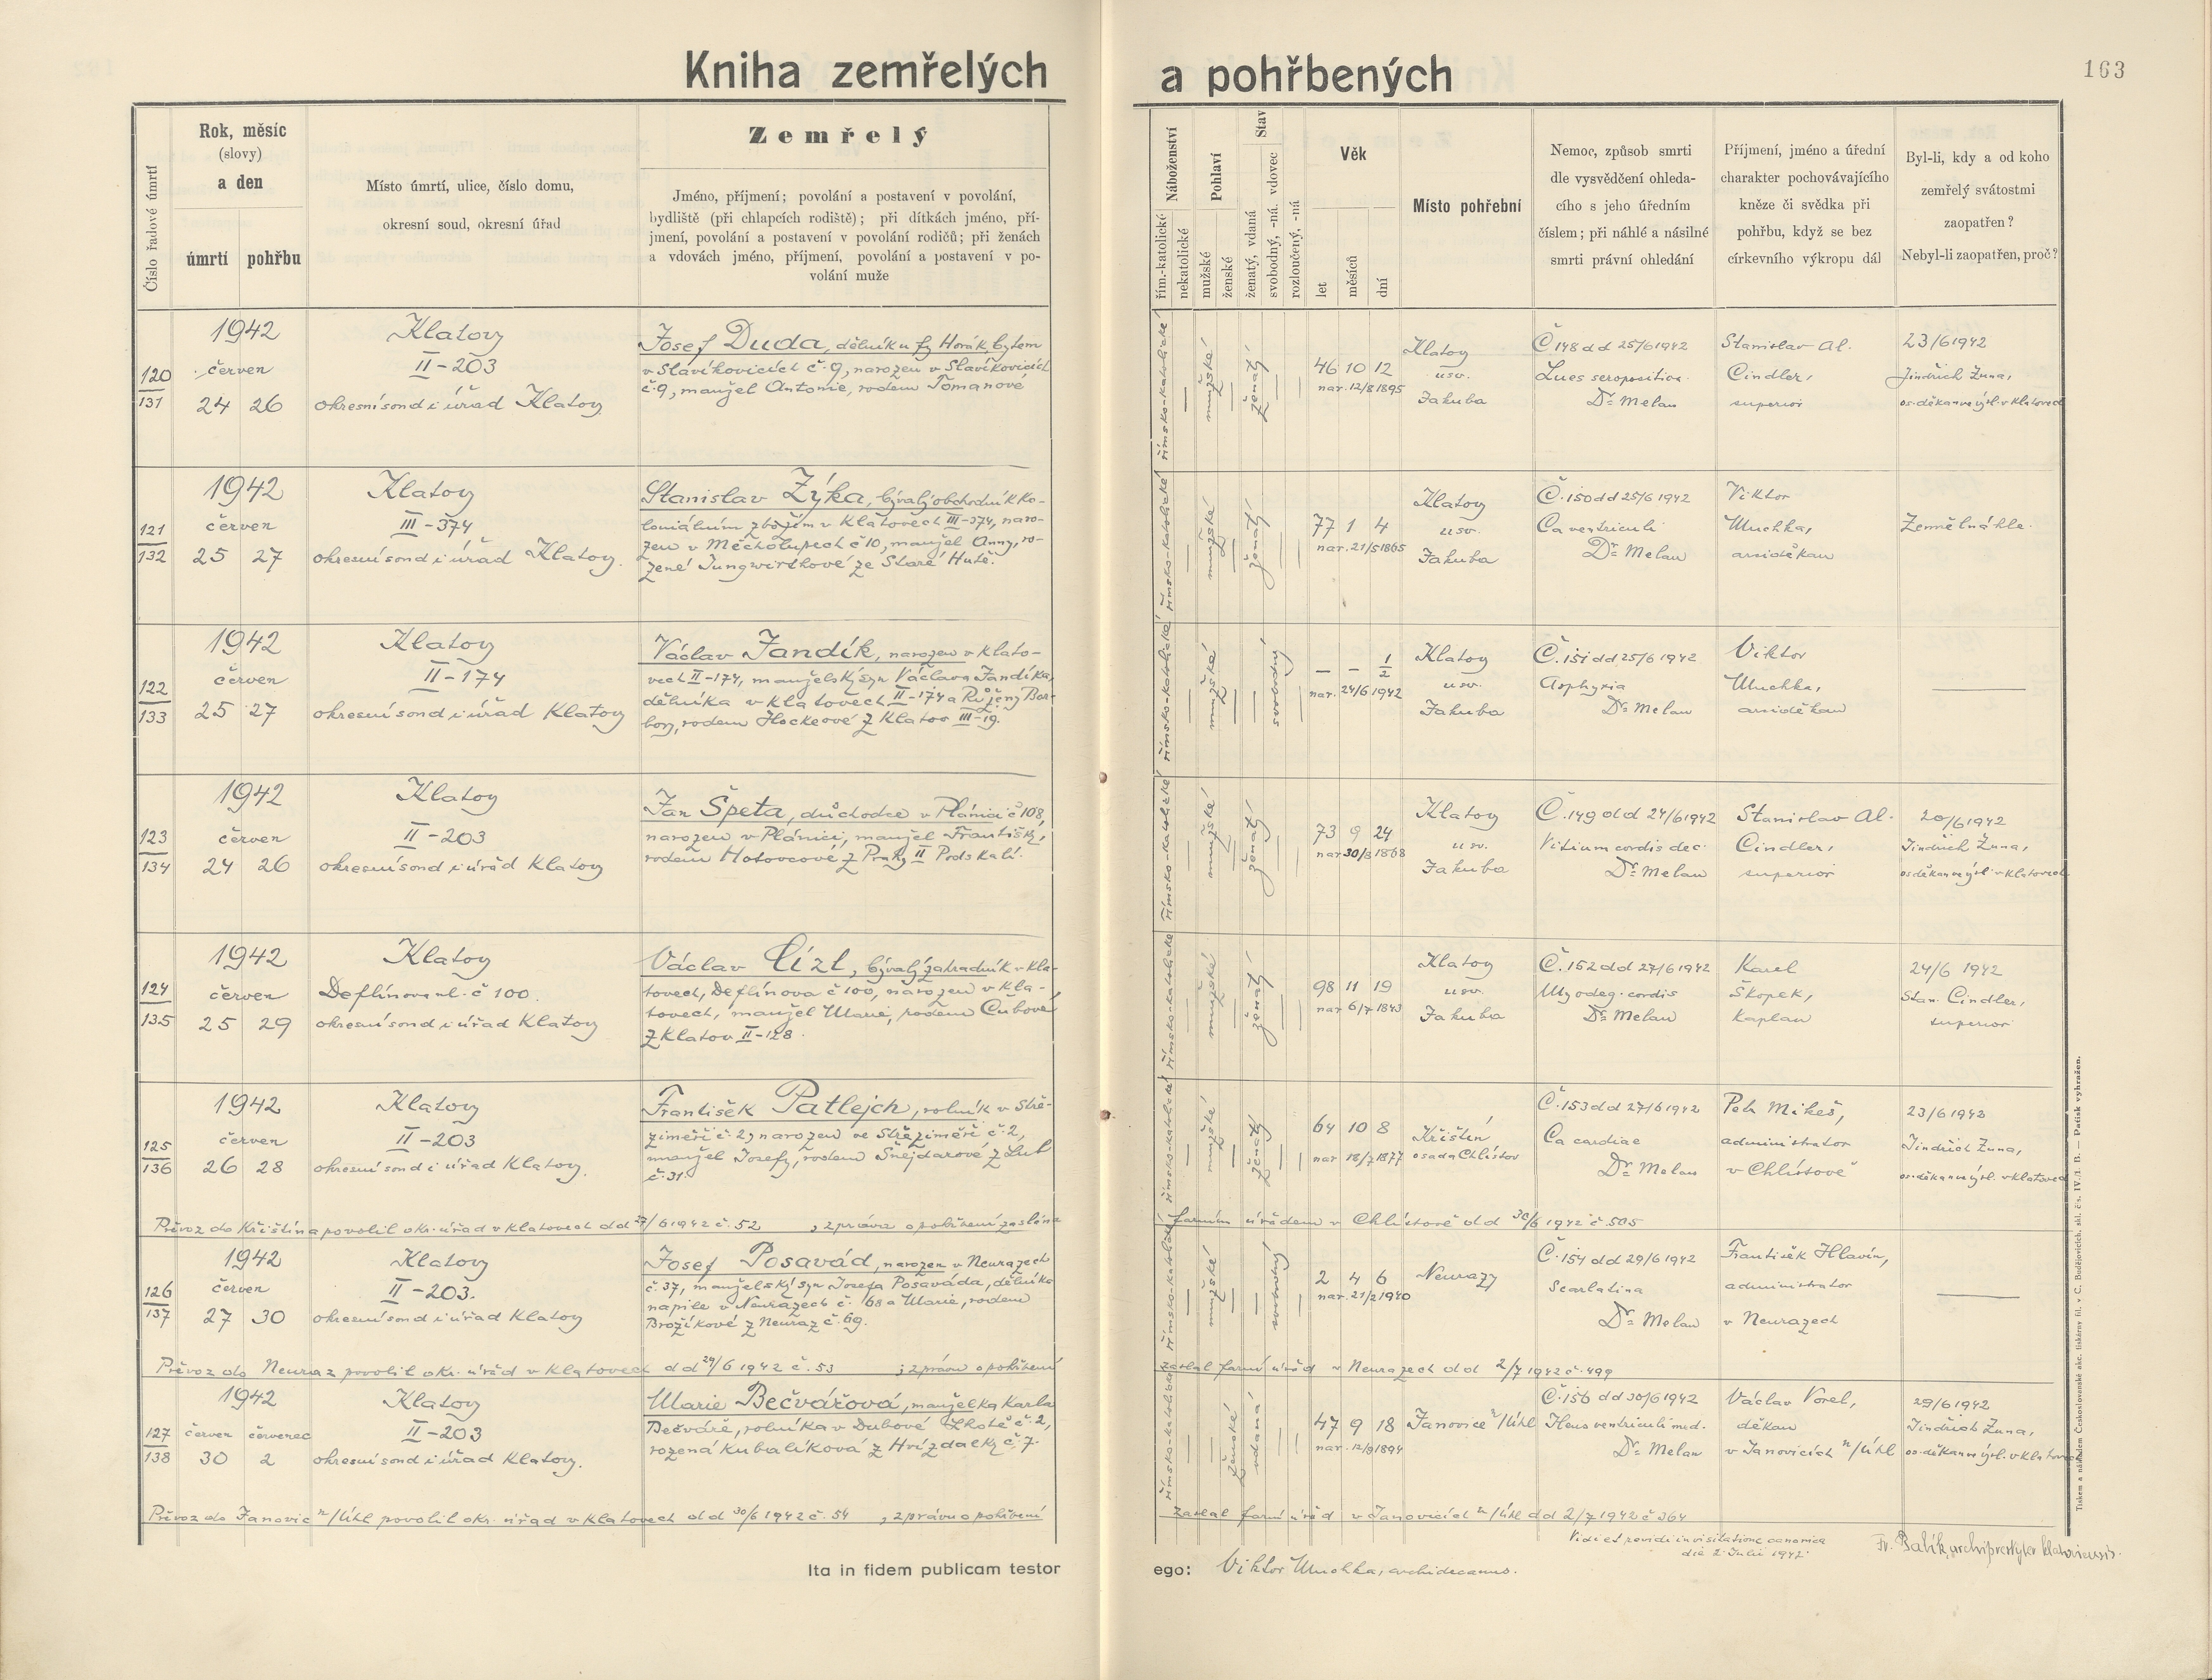 Kniha zemřelých a pohřbených
163
Číslo řadové úmrtí
Rok, měsíc
(slovy)
a den
úmrtí pohřbu
Místo úmrtí, ulice, číslo domu,
okresní soud, okresní úřad
Zemřelý
Jméno, příjmení; povolání a postavení v povolání,
bydliště (při chlapcích rodiště); při dítkách jméno, pří-
jmení, povolání a postavení v povolání rodičů; při ženách
a vdovách jméno, příjmení, povolání a postavení v po-
volání muže
Náboženství
řím.-katolické
nekatolické
Pohlaví
mužské
ženské
Stav
ženatý, vdaná
svobodný, -ná. vdovec
rozloučený, -ná
Věk
let
měsíců
dní
Místo pohřební
Nemoc, způsob smrti
dle vysvědčení ohleda-
cího s jeho úředním
číslem; při náhlé a násilné
smrti právní ohledání
Příjmení, jméno a úřední
charakter pochovávajícího
kněze či svědka při
pohřbu, když se bez
církevního výkropu dál
Byl-li, kdy a od koho
zemřelý svátostmi
zaopatřen?
Nebyl-li zaopatřen, proč?
120
131
1942
červen
24 26
Klatovy
II-203
okresní soud i úřad Klatovy
Josef Duda, dělník u fy Horák bytem
v Slavíkovicích č. 9, narozen v Slavíkovicích
č. 9, manžel Antonie, rodem Tomanové
římsko-katolické
mužské
ženatý
46 10 12
nar. 12/8 1895
Klatovy
u sv.
Jakuba
Č 148 dd 25/6 1942
Lues seropositiva.
Dr Melan
Stanislav Al.
Cindler,
superior
23/6 1942
Jindřich Žuna,
os. děkan ve výsl. v Klatovech
121
132
1942
červen
25 27
Klatovy
III-374
okresní soud i úřad Klatovy.
Stanislav Zýka, bývalý obchodník ko-
loniálním zbožím v Klatovech III-374, naro-
zen v Měcholupech č 10, manžel Anny, ro-
zené Jungwirthové ze Staré Hutě.
římsko-katolické
mužské
ženatý
77 1 4
nar. 21/5 1865
Klatovy
u sv.
Jakuba
Č. 150 dd 25/6 1942
Ca ventriculi
Dr Melan
Viktor
Muchka,
arciděkan
Zemřel náhle.
122
133
1942
červen
25 27
Klatovy
II-174
okresní soud i úřad Klatovy
Václav Jandík, narozen v Klato-
vech II-174, manželský syn Václava Jandíka,
dělníka v Klatovech II-174 a Růženy Bar-
bory, rodem Hockeové z Klatov III-19.
římsko-katolické
mužské
svobodný
— — 1/2
nar. 24/6 1942
Klatovy
u sv.
Jakuba
Č. 151 dd 25/6 1942
Asphyxia
Dr Melan
Viktor
Muchka,
arciděkan
123
134
1942
červen
24 26
Klatovy
II-203
okresní soud i úřad Klatovy
Jan Špeta, důchodce v Plánici č 108,
narozen v Plánici, manžel Františky,
rodem Hotovcové z Prahy II Podskalí.
římsko-katolické
mužské
ženatý
73 9 24
nar 30/8 1868
Klatovy
u sv.
Jakuba
Č. 149 dd 24/6 1942
Vitium cordis dec.
Dr Melan
Stanislav Al.
Cindler,
superior
20/6 1942
Jindřich Žuna,
os děkan ve výsl. v Klatovech
124
135
1942
červen
25 29
Klatovy
Deflínova ul. č 100.
okresní soud i úřad Klatovy
Václav Cízl, bývalý zahradník v Kla-
tovech, Deflínova č 100, narozen v Kla-
tovech, manžel Marie, rodem Čubové
z Klatov II-128.
římsko-katolické
mužské
ženatý
98 11 19
nar 6/7 1843
Klatovy
u sv.
Jakuba
Č. 152 dd 27/6 1942
Myodeg. cordis
Dr Melan
Karel
Škopek,
kaplan
24/6 1942
Stan. Cindler,
superior
125
136
1942
červen
26 28
Klatovy
II-203
okresní soud i úřad Klatovy.
František Patlejch, rolník v Stře-
zimeři č. 2, narozen ve Střezimeři č. 2,
manžel Josefy, rodem Šnejdarové z Lub
č. 31.
římsko-katolické
mužské
ženatý
64 10 8
nar 18/7 1877
Křištín,
osada Chlistov
Č. 153 dd 27/6 1942
Ca cardiae
Dr Melan
Petr Mikeš,
administrator
v Chlistově
23/6 1942
Jindřich Žuna,
os. děkan ve výsl. v Klatovech
Převoz do Křištína povolil okr. úřad v Klatovech dd 27/6 1942 č. 52, zpráva o pohřbení zaslána farním úřadem v Chlistově dd 30/6 1942 č. 505
126
137
1942
červen
27 30
Klatovy
II-203.
okresní soud i úřad Klatovy
Josef Posavád, narozen v Neurazech
č. 37, manželský syn Josefa Posaváda, dělníka
na pile v Neurazech č. 68 a Marie, rodem
Brožíkové z Neuraz č. 69.
římsko-katolické
mužské
svobodný
2 4 6
nar. 21/2 1940
Neurazy
Č. 154 dd 29/6 1942
Scarlatina
Dr Melan
František Hlavín,
administrator
v Neurazech
Převoz do Neuraz povolil okr. úřad v Klatovech dd 29/6 1942 č. 53; zprávu o pohřbení zaslal farní úřad v Neurazech dd 2/7 1942 č. 499
127
138
1942
červen červenec
30 2
Klatovy
II-203
okresní soud i úřad Klatovy.
Marie Bečvářová, manželka Karla
Bečváře, rolníka v Dubové Lhotě č. 2,
rozená Kubalíková z Hvízdalky č. 7.
římsko-katolické
ženské
vdaná
47 9 18
nar. 12/9 1894
Janovice n/Úhl
Č. 156 dd 30/6 1942
Dr Melan
Václav Vorel,
děkan
v Janovicích n/Úhl
29/6 1942
Jindřich Žuna,
os. děkan ve výsl. v Klatovech
Převoz do Janovic n/Úhl povolil okr. úřad v Klatovech dd 30/6 1942 č. 54, zprávu o pohřbení zaslal farní úřad v Janovicích n/Úhl dd 2/7 1942 č 364
Vidi et revidi in visitatione canonica
die 2. Julii 1942
archipresbyter klatoviensis.
Ita in fidem publicam testor ego: Viktor Muchka, archidecanus.
Tiskem a nákladem Českoslovanské akc. tiskárny fil. v Č. Budějovicích, skl. čís. IV./1. B. — Patisk vyhražen.